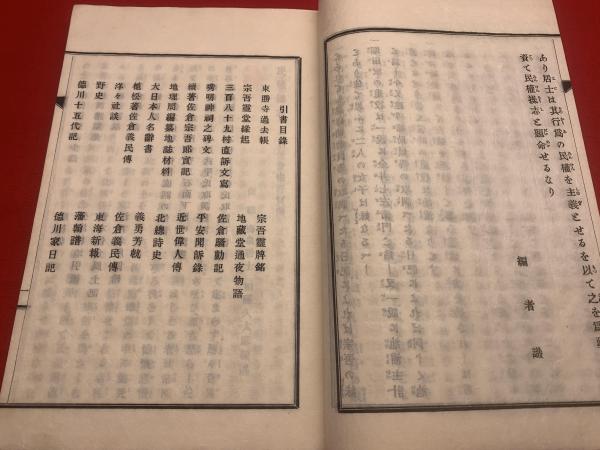 あり居士は其行爲の民權を主義とせるを以て之を
煑て民權操志と題命せるなり
編者識
引書目錄
東勝寺過去帳
宗吾靈牌銘
宗吾靈堂緣起
地藏堂通夜物語
三百八十九村直訴文寫
佐倉騷動記
口明神祠之碑文
平安聞訴錄
續著佐倉宗吾郞實記
近世偉人傳
地理局編墓地誌材料
北總詩史
大日本人名辭書
義勇芳軌
植松著佐倉義民傳
佐倉義民傳
洋々社談
東海新報
野史
藩翰譜
德川十五代記
德川家日記